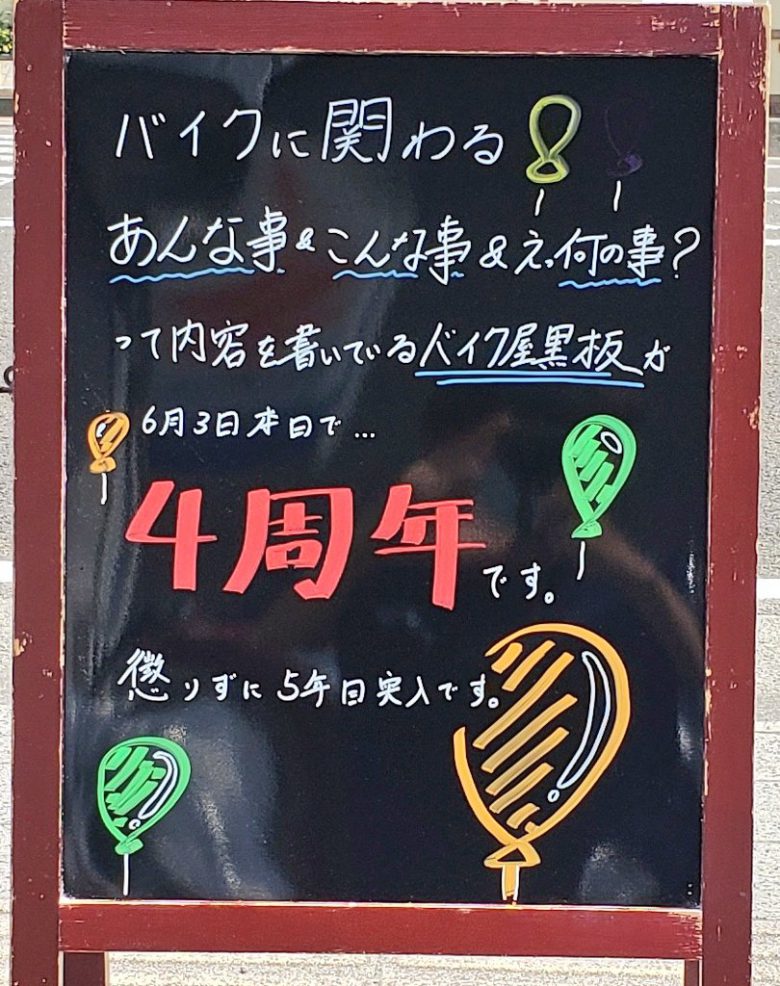 バイクに関わる
あんな事&こんな事&えっ何の事?
って内容を書いているバイク屋黒板が
6月3日本日で...
4周年です。
懲りずに5年目突入です。